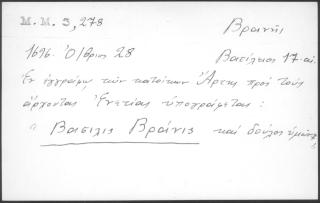 M. M. 3, 278 Βρανής
1696. Ὀ/βρίου 28 Βασίλειος 17-αι.
Ἐν ἐγγράφῳ τῶν κατοίκων Ἄρτης πρὸς τοὺς
ἄρχοντας Ἑνετίας ὑπογράφεται:
" Βασιλις Βράνις καὶ δοῦλος ὑμῶν"